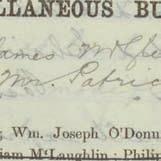 LLANEOUS BU
James McGle
Wm. Patric
, Wm. Joseph O'Donn
iam McLaughlin; Phili